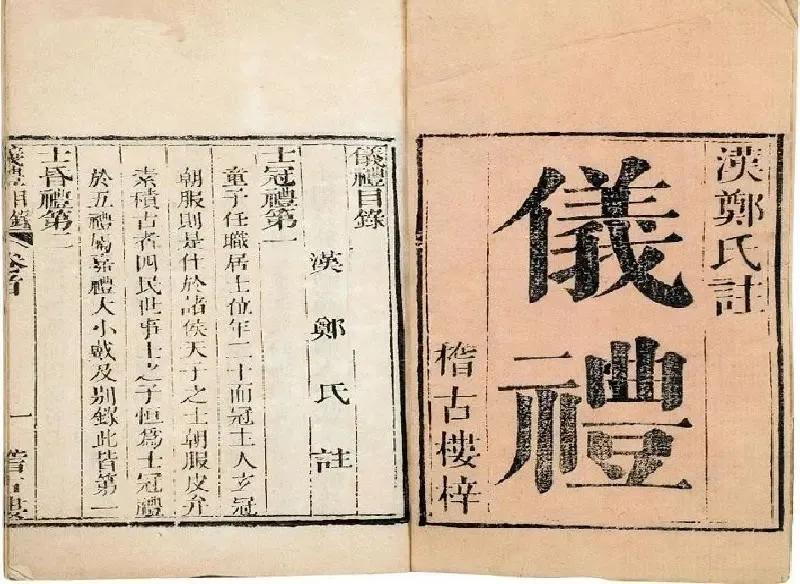 漢鄭氏註
儀禮
稽古樓梓
儀禮目錄
漢鄭氏註
士冠禮第一
童子任職居士位年二十而冠士人玄冠
朝服則是仕於諸侯天子之士朝服皮弁
素積古者四民世事士之子恒爲士冠禮
於五禮屬嘉禮大小戴及別錄此皆第一
士昏禮第二
儀禮目錄 卷首 一